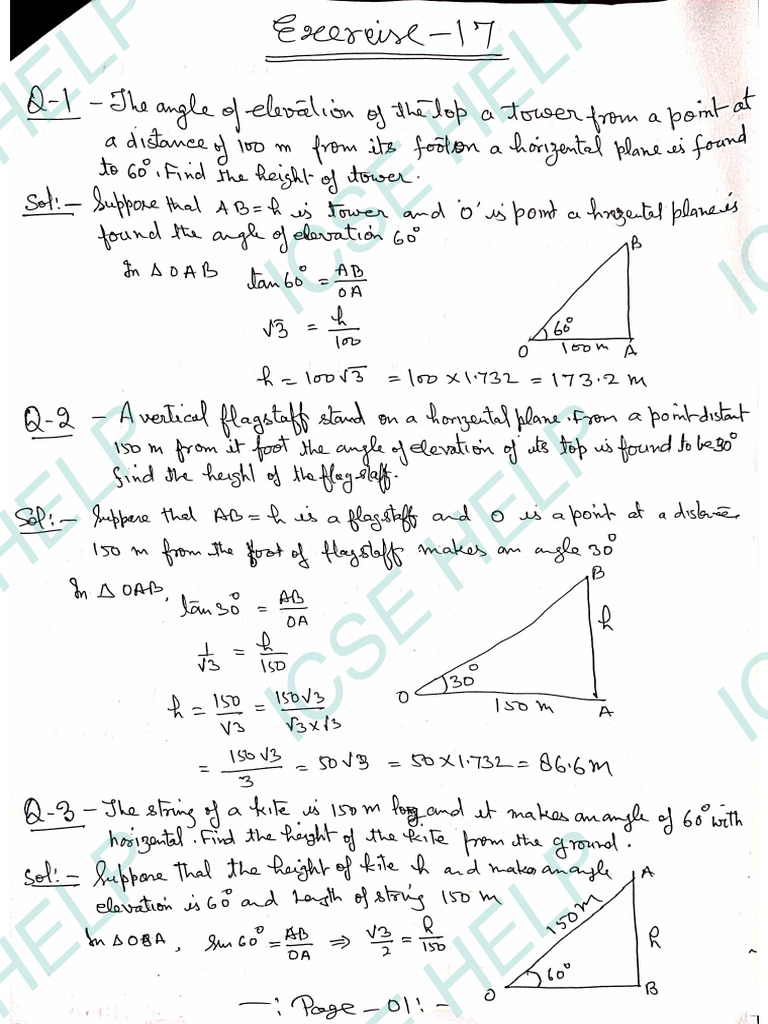 Exercise - 17
Q-1 - The angle of elevation of the top a tower from a point at
a distance of 100 m from its foot on a horizental plane is found
to 60°. Find the height of tower.
Sol:- Suppose that AB = h is tower and 'O' is point a hrozental plane is
found the angle of elevation 60°
In △ OAB tan 60° = AB/OA
√3 = h/100
h = 100√3 = 100 × 1.732 = 173.2 m
B
60°
O 100 m A
Q-2 - A vertical flagstaff stand on a horyzental plane. From a point distant
150 m from it foot the angle of elevation of its top is found to be 30°
find the height of the flagstaff.
Sol:- Suppose that AB = h is a flagstaff and O is a point at a distance
150 m from the foot of flagstaff makes an angle 30°
In △ OAB, tan 30° = AB/OA
1/√3 = h/150
h = 150/√3 = 150√3/√3×√3
= 150√3/3 = 50√3 = 50 × 1.732 = 86.6 m
B
h
30°
O 150 m A
Q-3 - The string of a kite is 150 m long and it makes an angle of 60° with
horizental. Find the height of the kite from the ground.
Sol:- Suppose that the height of kite h and makes an angle
elevation is 60° and length of string 150 m
In △ OBA, sin 60° = AB/OA ⇒ √3/2 = h/150
A
150 m
h
60°
O B
-: Page - 01 :-
ICSE HELP
ICSE HELP